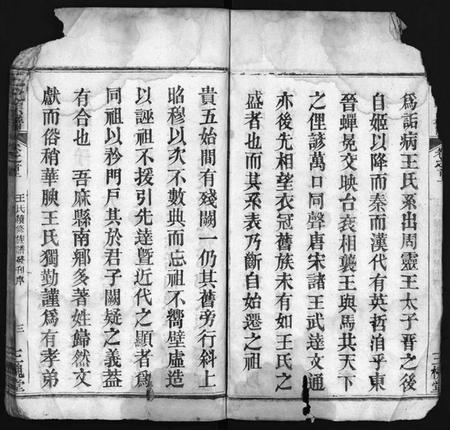 為詬病王氏系出周靈王太子晉之後
自姬以降而秦而漢代有英哲洎乎東
晉蟬冕交映台袞相襲王與馬其天下
之俚諺萬口同聲唐宋諸王武達文通
亦後先相望衣冠舊族未有如王氏之
盛者也而其系表乃斷自始遷之祖
貴五始間有殘闕一仍其舊旁行斜上
昭穆以次不數典而忘祖不嚮壁虛造
以誣祖不援引先達暨近代之顯者為
同祖以矜門戶其於君子闕疑之義蓋
有合也 吾麻縣南鄉多著姓歸然文
獻而俗稍華腴王氏獨勤謹為有孝弟
王氏續修族譜發刊序
三
三槐堂